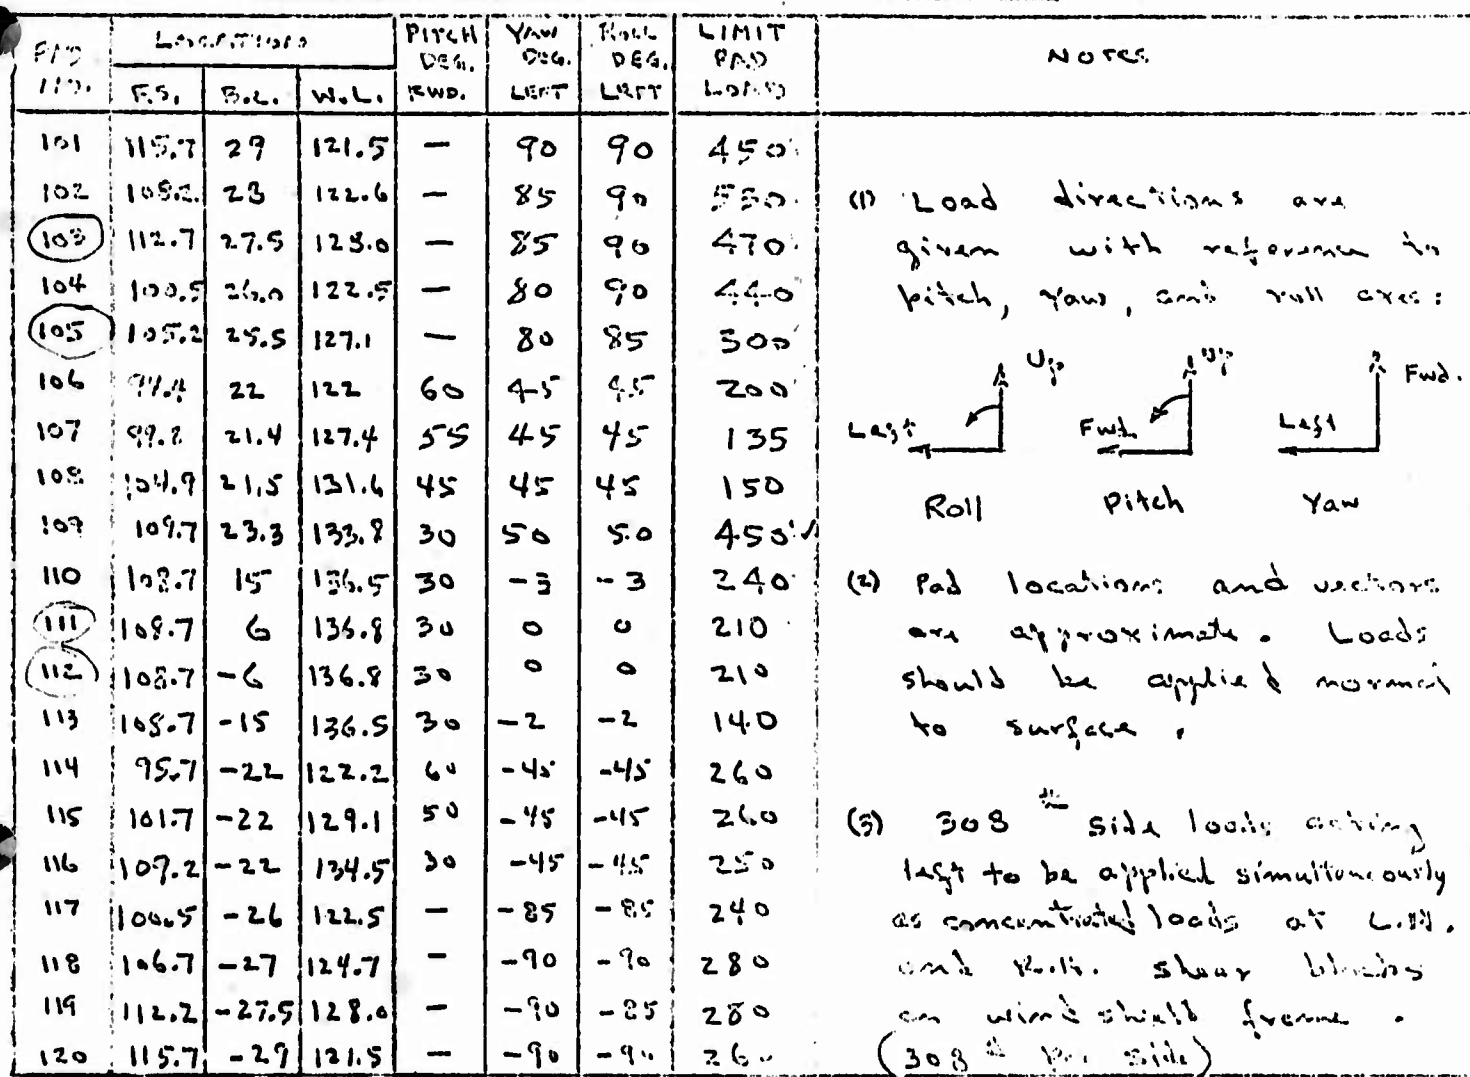 PAD NO. | LOCATIONS F.S. | B.L. | W.L. | PITCH DEG. FWD. | YAW DEG. LEFT | ROLL DEG. LEFT | LIMIT PAD LOADS | NOTES
101 | 115.7 | 29 | 121.5 | — | 90 | 90 | 450
102 | 108.2 | 28 | 122.6 | — | 85 | 90 | 550
103 | 112.7 | 27.5 | 128.0 | — | 85 | 90 | 470
104 | 100.5 | 26.0 | 122.5 | — | 80 | 90 | 440
105 | 105.2 | 25.5 | 127.1 | — | 80 | 85 | 300
106 | 94.4 | 22 | 122 | 60 | 45 | 45 | 200
107 | 99.2 | 21.4 | 127.4 | 55 | 45 | 45 | 135
108 | 104.9 | 21.5 | 131.6 | 45 | 45 | 45 | 150
109 | 109.7 | 23.3 | 133.8 | 30 | 50 | 50 | 450 ✓
110 | 108.7 | 15 | 136.5 | 30 | -3 | -3 | 240
111 | 108.7 | 6 | 136.8 | 30 | 0 | 0 | 210
112 | 108.7 | -6 | 136.8 | 30 | 0 | 0 | 210
113 | 108.7 | -15 | 136.5 | 30 | -2 | -2 | 140
114 | 95.7 | -22 | 122.2 | 60 | -45 | -45 | 260
115 | 101.7 | -22 | 129.1 | 50 | -45 | -45 | 260
116 | 109.2 | -22 | 134.5 | 30 | -45 | -45 | 250
117 | 100.5 | -26 | 122.5 | — | -85 | -85 | 240
118 | 106.7 | -27 | 124.7 | — | -90 | -90 | 280
119 | 112.2 | -27.5 | 128.0 | — | -90 | -85 | 280
120 | 115.7 | -29 | 121.5 | — | -90 | -90 | 260
(1) Load directions are
given with reference to
pitch, yaw, and roll axes:
Up Up Fwd.
Left Fwd. Left
Roll Pitch Yaw
(2) Pad locations and vectors
are approximate. Loads
should be applied normal
to surface.
(3) 308 # side loads acting
left to be applied simultaneously
as concentrated loads at L.H.
and R.H. shear blocks
on windshield frame.
(308 # Per side)